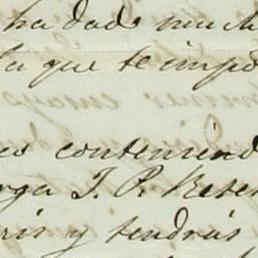 ha dado much
la que te impo
es conteniend
rga J. P. Reser
rir y tendrás